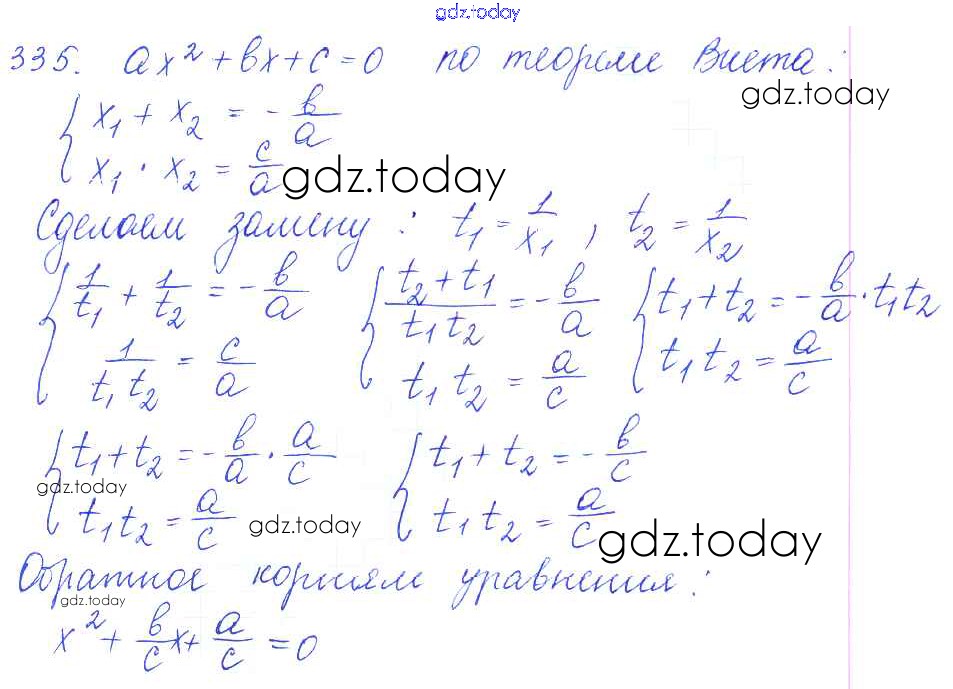 gdz.today
335. ax² + bx + c = 0 по теореме Виета:
gdz.today
{ x₁ + x₂ = - b/a
{ x₁ · x₂ = c/a
gdz.today
Сделаем замену: t₁ = 1/x₁, t₂ = 1/x₂
{ 1/t₁ + 1/t₂ = - b/a { (t₂ + t₁)/(t₁ t₂) = - b/a { t₁ + t₂ = - b/a · t₁ t₂
{ 1/(t₁ t₂) = c/a { t₁ t₂ = a/c { t₁ t₂ = a/c
{ t₁ + t₂ = - b/a · a/c { t₁ + t₂ = - b/c
gdz.today
{ t₁ t₂ = a/c { t₁ t₂ = a/c
gdz.today
gdz.today
Обратное корням уравнения:
gdz.today
x² + b/c x + a/c = 0